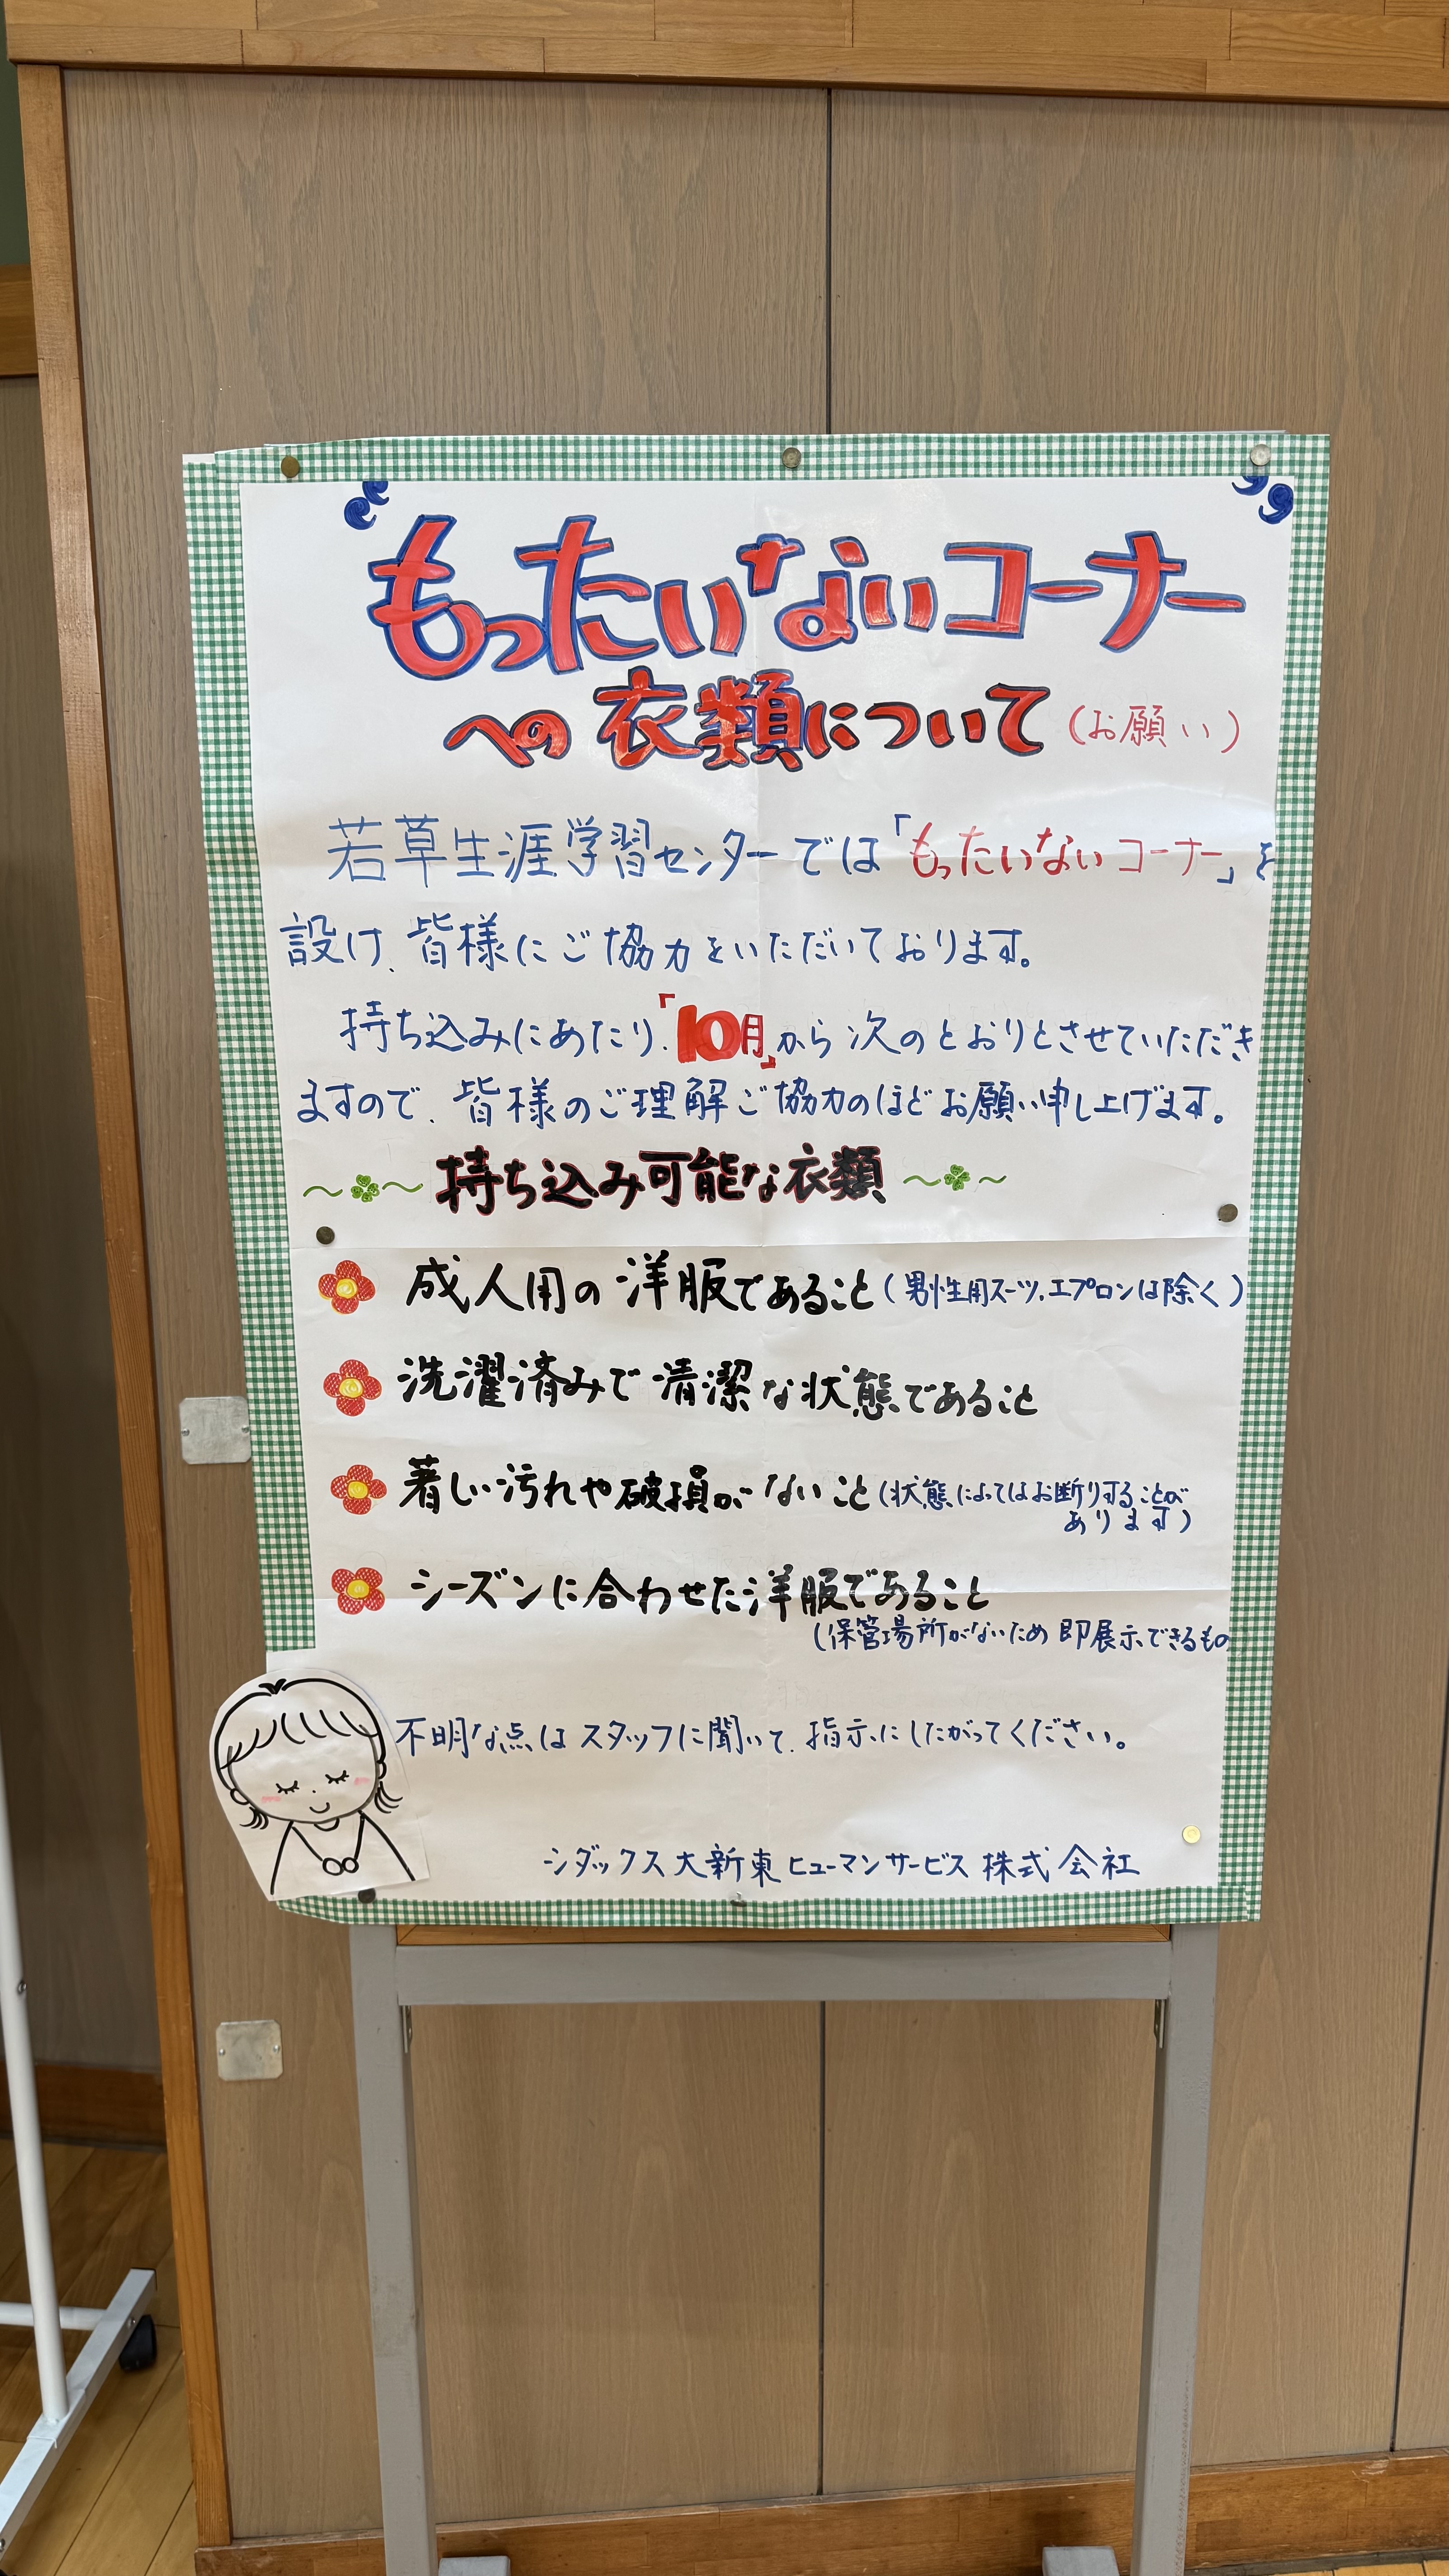 もったいないコーナー
への衣類について（お願い）
若草生涯学習センターでは「もったいないコーナー」を
設け、皆様にご協力をいただいております。
持ち込みにあたり、「10月」から次のとおりとさせていただき
ますので、皆様のご理解ご協力のほどお願い申し上げます。
～～持ち込み可能な衣類～～
成人用の洋服であること（男性用スーツ、エプロンは除く）
洗濯済みで清潔な状態であること
著しい汚れや破損がないこと（状態によってはお断りすることが
あります）
シーズンに合わせた洋服であること
（保管場所がないため即展示できるもの
不明な点はスタッフに聞いて、指示にしたがってください。
シダックス大新東ヒューマンサービス株式会社